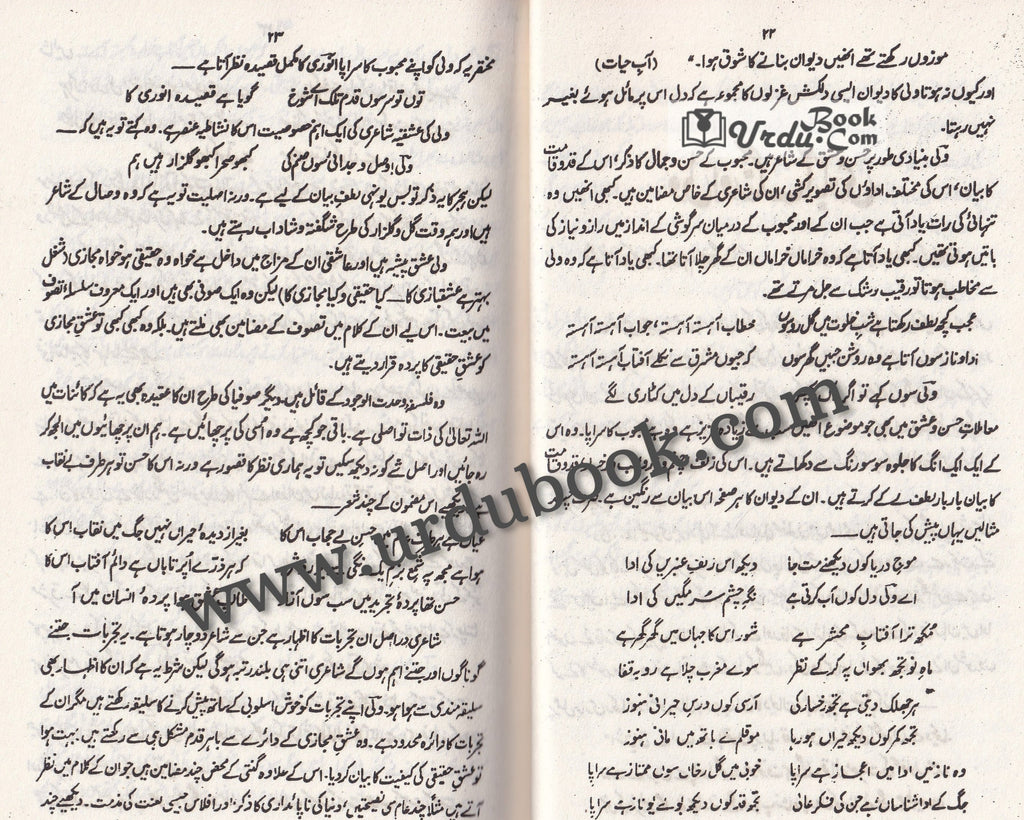 ۲۲
موزوں رکھتے تھے انھیں دیوان بنانے کا شوق ہوا۔" (آبِ حیات)
اور کیوں نہ ہوتا ولی کا دیوان ایسی دلکش غزلوں کا مجموعہ ہے کہ دل اس پر مائل ہوئے بغیر
نہیں رہتا۔
Urdu Book .Com
ولی بنیادی طور پر حُسن و عشق کے شاعر ہیں۔ محبوب کے حسن و جمال کا ذکر، اس کے قد و قامت
کا بیان، اس کی مختلف اداؤں کی تصویر کشی، ان کی شاعری کے خاص مضامین ہیں۔ کبھی انھیں وہ
تنہائی کی رات یاد آتی ہے جب ان کے اور محبوب کے درمیان سرگوشی کے انداز میں راز و نیاز کی
باتیں ہوتی تھیں۔ کبھی یاد آتا ہے کہ وہ خراماں خراماں ان کے گھر چلا آتا تھا۔ کبھی یاد آتا ہے کہ وہ ولی
سے مخاطب ہوتا تو رقیب رشک سے جل مرتے تھے۔
عجب کچھ لطف رکھتا ہے شبِ خلوت میں گل رو سوں خطاب آہستہ آہستہ، جواب آہستہ آہستہ
ادا و ناز سوں آتا ہے وہ روشن جبیں گھر سوں کہ جیوں مشرق سے نکلے آفتاب آہستہ آہستہ
ولی سوں کہے تو اگر رقیباں کے دل میں کٹاری لگے
معاملاتِ حسن و عشق میں بھی جو موضوع انھیں سب سے زیادہ عزیز ہے وہ ہے محبوب کا سراپا۔ وہ اس
کے ایک ایک انگ کا جلوہ سو سو رنگ سے دکھاتے ہیں۔ اس کی زلف و قد و قامت
کا بیان بار بار لطف لے لے کر کرتے ہیں۔ ان کے دیوان کا ہر صفحہ اس بیان سے رنگین ہے۔
مثالیں یہاں پیش کی جاتی ہیں ــــ
موجِ دریا کوں دیکھنے مت جا دیکھ اس زلفِ عنبریں کی ادا
اے ولی دل کوں آب کرتی ہے نگہِ چشمِ سرمگیں کی ادا
مکھ ترا آفتابِ محشر ہے شور اس کا جہاں میں گھر گھر ہے
ماہِ نو تجھ بھواں پر کر کے نظر سوے مغرب چلا ہے رو بہ قفا
ہر جھلک دیتی ہے تجھ رخسار کی آرسی کوں درسِ حیرانی ہنوز
تجھ کمر کوں دیکھ حیراں ہو رہا مو قلم لے ہاتھ میں مانی ہنوز
وہ نازنیں ادا میں اعجاز ہے سراپا خوبی میں گل رخاں سوں ممتاز ہے سراپا
جگ کے ادا شناساں، ہے جن کی فکر عالی تجھ قد کوں دیکھ بولے یو ناز ہے سراپا
۲۳
مختصر یہ کہ ولی کو اپنے محبوب کا سراپا انوری کا مکمل قصیدہ نظر آتا ہے ــــ
توں تو سر سوں قدم تلک اے شوخ گویا ہے قصیدہ انوری کا
ولی کی عشقیہ شاعری کی ایک اہم خصوصیت اس کا نشاطیہ عنصر ہے۔ وہ کہتے تو یہ ہیں کہ ــــ
ولی! وصل و جدائی سوں صنم کی کبھو صحرا کبھو گلزار ہیں ہم
لیکن ہجر کا یہ ذکر تو بس یوں ہی لطفِ بیان کے لیے ہے۔ ورنہ اصلیت تو یہ ہے کہ وہ وصال کے شاعر
ہیں اور ہر وقت گل و گلزار کی طرح شگفتہ و شاداب رہتے ہیں۔
ولی عشق پیشہ ہیں اور عاشقی ان کے مزاج میں داخل ہے خواہ وہ حقیقی ہو خواہ مجازی (شغل
بہتر ہے عشقبازی کا ــ کیا حقیقی و کیا مجازی کا) لیکن وہ ایک صوفی بھی ہیں اور ایک معروف سلسلۂ تصوف
میں بیعت۔ اس لیے ان کے کلام میں تصوف کے مضامین بھی ملتے ہیں۔ بلکہ وہ کبھی کبھی تو عشقِ مجازی
کو عشقِ حقیقی کا پردہ قرار دیتے ہیں۔
وہ فلسفۂ وحدت الوجود کے قائل ہیں۔ دیگر صوفیا کی طرح ان کا عقیدہ بھی یہ ہے کہ کائنات میں
اللہ تعالیٰ کی ذات تو اصلی ہے۔ باقی جو کچھ ہے وہ اسی کی پرچھائیں ہے۔ ہم ان پرچھائیوں میں الجھ کر
رہ جائیں اور اصل شے کو نہ دیکھ سکیں تو یہ ہماری نظر کا قصور ہے ورنہ اس کا حسن تو ہر طرف بے نقاب
ہے۔ دیکھیے اس مضمون کے چند شعر ــــ
عیاں ہے ہر طرف عالم میں حسنِ بے حجاب اس کا بغیر از دیدۂ حیراں نہیں جگ میں نقاب اس کا
ہوا ہے مجھ پہ شمعِ بزمِ یک رنگی سوں یو روشن کہ ہر ذرے اُپر تاباں ہے دائم آفتاب اس کا
حسن تھا پردۂ تجرید میں سب سوں آزاد طالبِ عشق ہوا پردۂ انسان میں آ
شاعری دراصل ان تجربات کا اظہار ہے جن سے شاعر دو چار ہوتا ہے۔ یہ تجربات جتنے
گوناگوں اور جتنے اہم ہوں گے شاعری اتنی ہی بلند رتبہ ہوگی لیکن شرط یہ ہے کہ ان کا اظہار بھی
سلیقہ مندی سے ہوا ہو۔ ولی اپنے تجربات کو خوش اسلوبی کے ساتھ پیش کرنے کا سلیقہ رکھتے ہیں مگر ان کے
تجربات کا دائرہ محدود ہے۔ وہ عشقِ مجازی کے دائرے سے باہر قدم مشکل ہی سے رکھتے ہیں۔ بہت ہوا
تو عشقِ حقیقی کی کیفیت کا بیان کر دیا۔ اس کے علاوہ گنتی کے محض چند مضامین ہیں جو ان کے کلام میں نظر
آتے ہیں مثلاً چند عام سی نصیحتیں، دنیا کی ناپائداری کا ذکر، اور افلاس جیسی لعنت کی مذمت۔ دیکھیے چند
www.urdubook.com